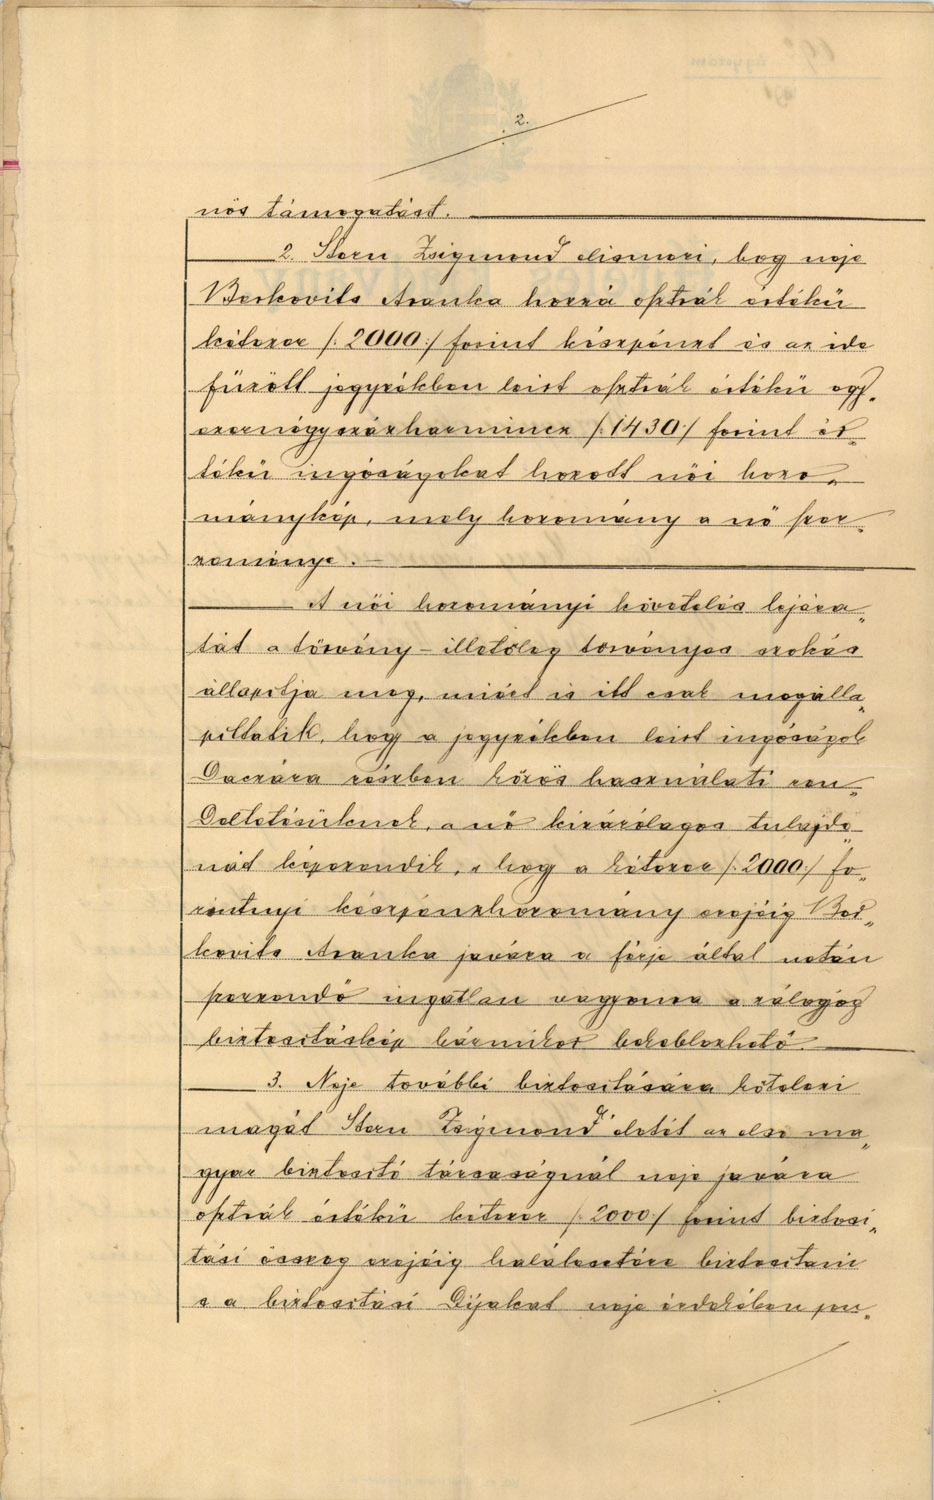 2.
nös támogatást.
2. Stern Zsigmond elismeri, hogy neje
Berkovits Aranka hozzá osztrák értékü
kétezer /: 2000 :/ forint készpénzt és az ide
füzött jegyzékben leirt osztrák értékü egy„
ezernégyszázharmincz /: 1430 :/ forint ér„
tékü ingóságokat hozott női hozo„
mánykép, mely hozomány a nő szer„
zeménye. —
A női hozományi követelés lejára„
tát a törvény – illetőleg törvényes szokás
állapitja meg, miért is itt csak megálla„
pittatik, hogy a jegyzékben leirt ingóságok
Daczára részben közös használati ren„
Deltetésüknek, a nő kizárólagos tulajdo„
nát képezendik, s hogy a kétezer /: 2000 :/ fo„
rintnyi készpénzhozomány erejéig Ber„
kovits Aranka javára a férje által netán
szerzendő ingatlan vagyonra a zálogjog
biztositáskép bármikor bekeblezhető.
3. Neje további biztositására kötelezi
magát Stern Zsigmond életét az első ma„
gyar biztositó társaságnál neje javára
osztrák értékü kétezer /: 2000 :/ forint biztosi„
tási összeg erejéig halálesetére biztositani
s a biztositási Dijakat neje érdekében pon„